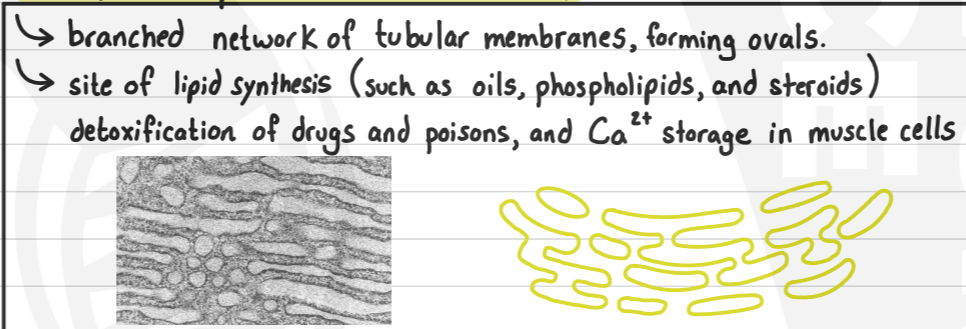 ↳ branched network of tubular membranes, forming ovals.
↳ site of lipid synthesis (such as oils, phospholipids, and steroids)
detoxification of drugs and poisons, and Ca²⁺ storage in muscle cells